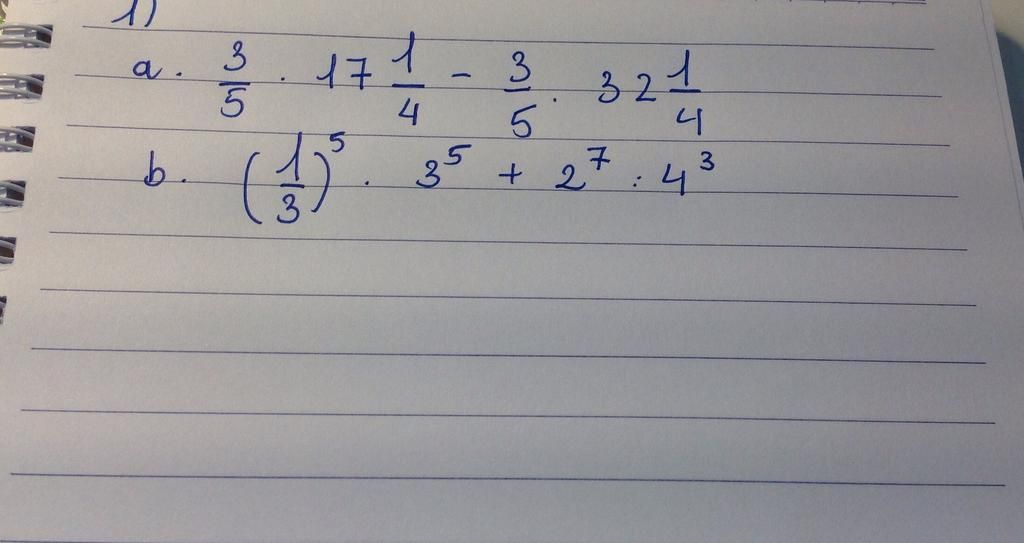 1)
a. 3/5 . 17 1/4 - 3/5 . 32 1/4
b. (1/3)^5 . 3^5 + 2^7 : 4^3